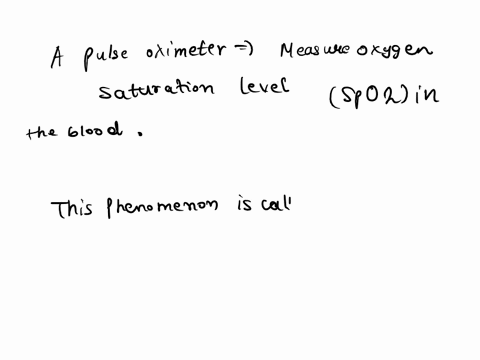 A pulse oximeter => Measure oxygen
saturation level (SpO2) in
the blood.
This phenomenon is call